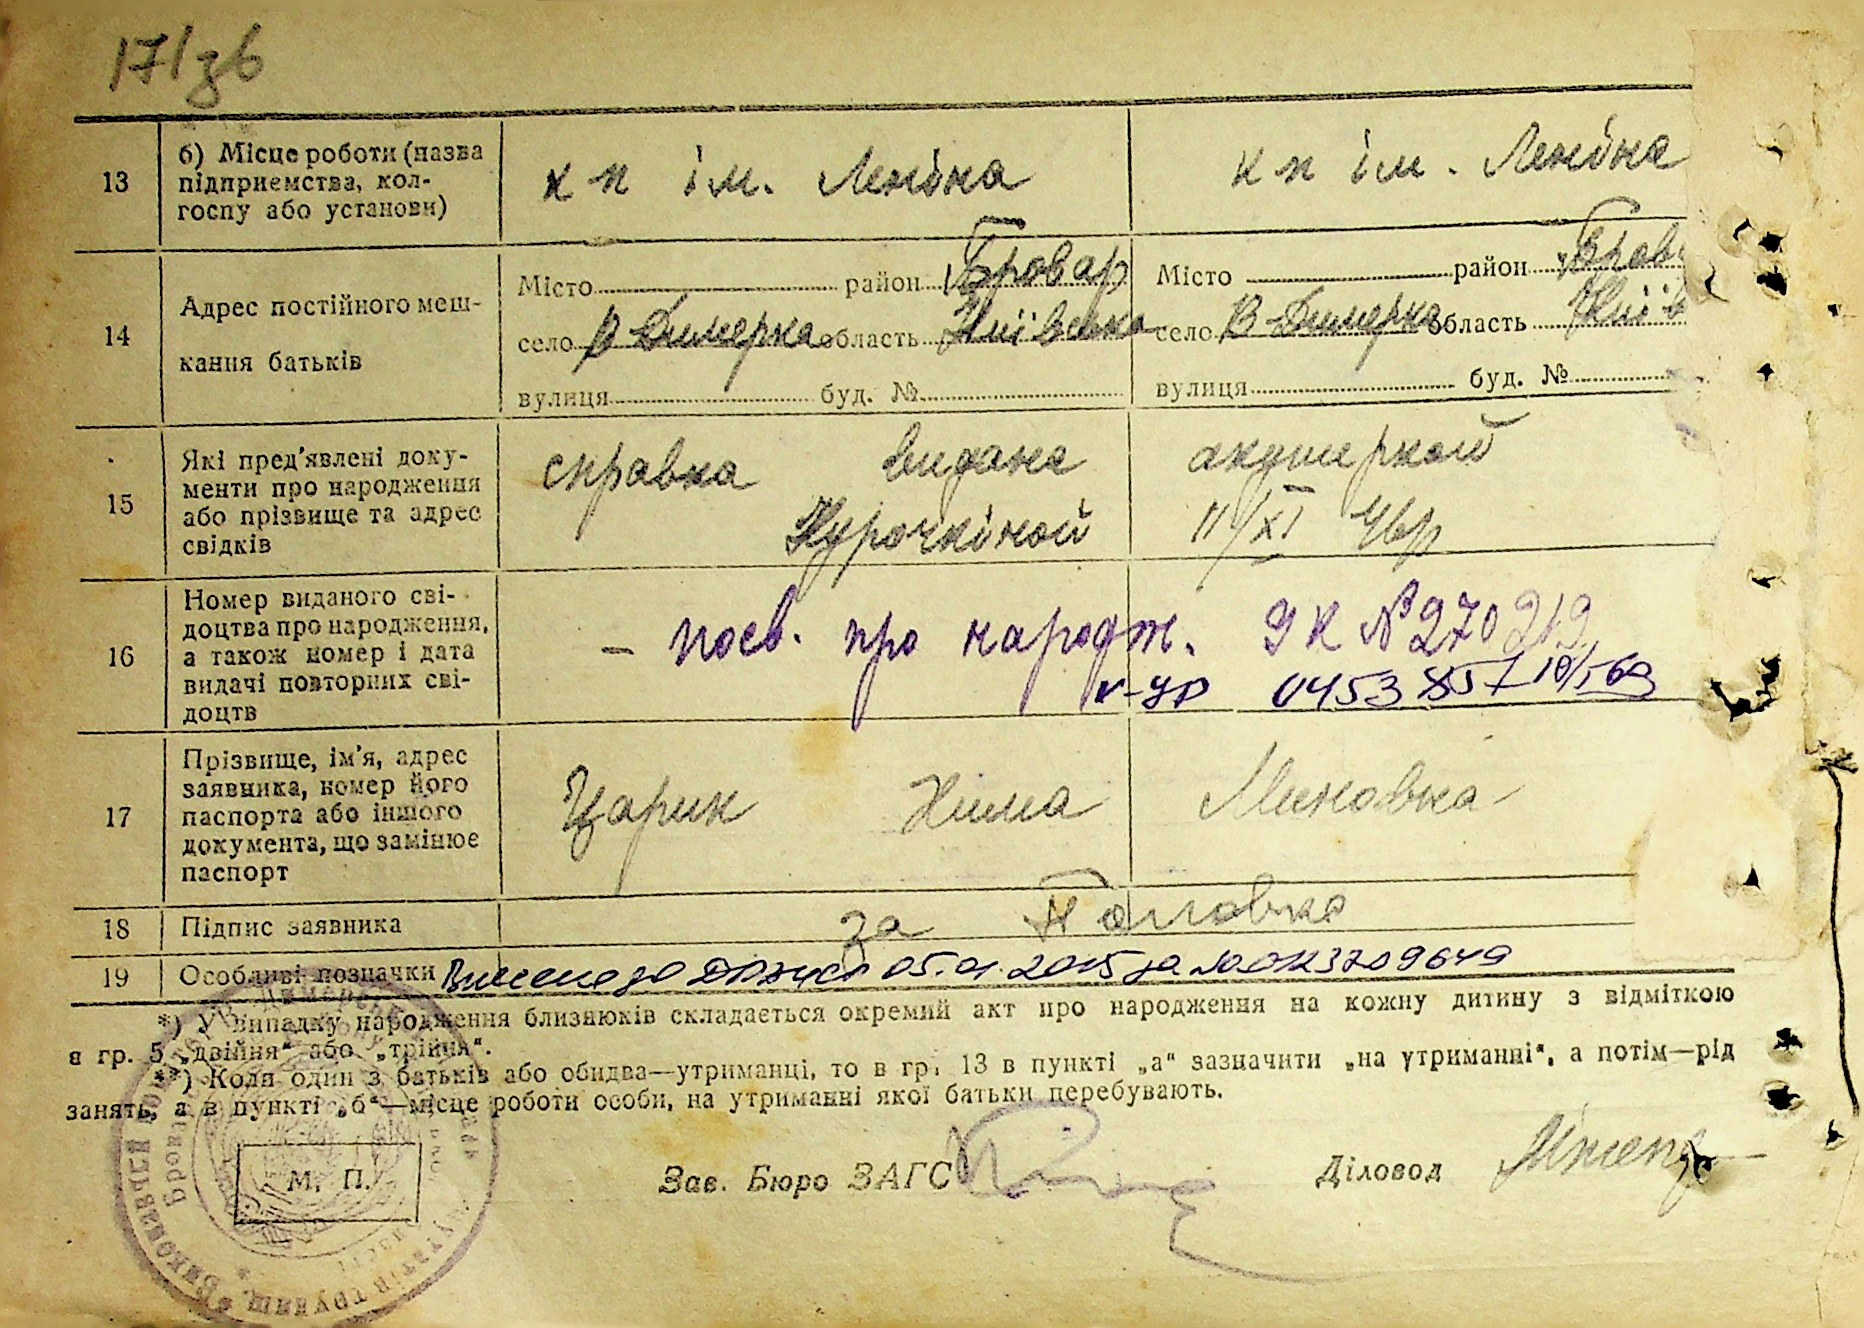 17/зв
13 б) Місце роботи (назва підприємства, кол-
госпу або установи)
к п ім. Леніна
к п ім. Леніна
14 Адрес постійного меш-
кання батьків
Місто район Бровар
село В Димерка область Київська
вулиця буд. №
Місто район Бров
село В Димерка область Київ
вулиця буд. №
15 Які пред'явлені доку-
менти про народження
або прізвище та адрес
свідків
справка видана акушеркой
Курочкіной 11/XI
16 Номер виданого сві-
доцтва про народження,
а також номер і дата
видачі повторних сві-
доцтв
– посв. про народж. УК № 270
17 Прізвище, ім'я, адрес
заявника, номер його
паспорта або іншого
документа, що замінює
паспорт
Царик
18 Підпис заявника
за
19 Особливі позначки
05.01.2015 за №
*) У випадку народження близнюків складається окремий акт про народження на кожну дитину з відміткою
в гр. 5 „двійня“ або „трійня“.
**) Коли один з батьків або обидва—утриманці, то в гр. 13 в пункті „а“ зазначити „на утриманні“, а потім—рід
занять, а в пункті „б“—місце роботи особи, на утриманні якої батьки перебувають.
М. П.
Зав. Бюро ЗАГС
Діловод